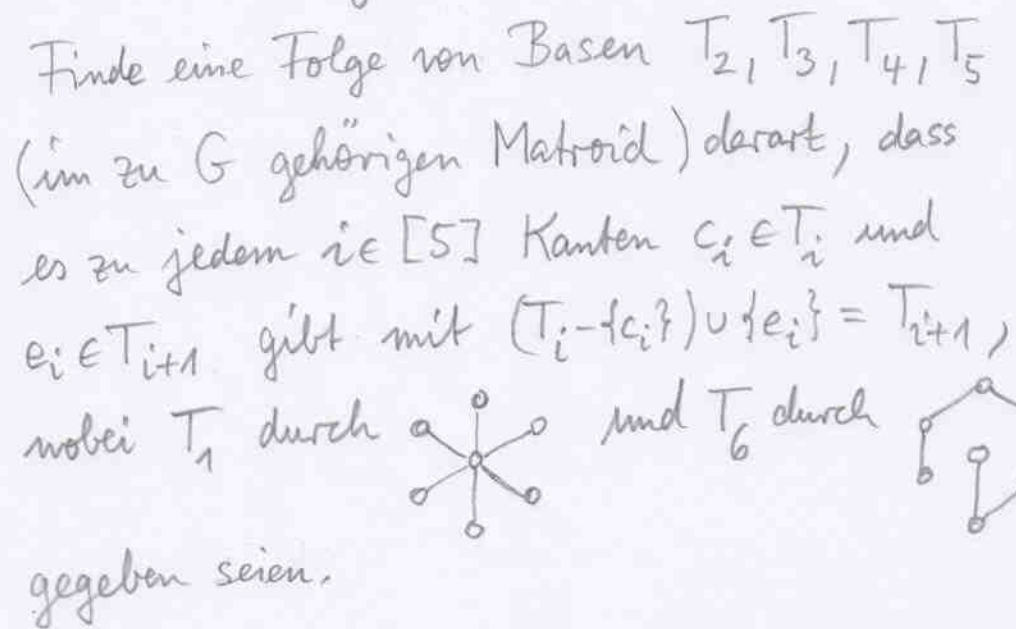 Finde eine Folge von Basen T₂, T₃, T₄, T₅
(im zu G gehörigen Matroid) derart, dass
es zu jedem i ∈ [5] Kanten cᵢ ∈ Tᵢ und
eᵢ ∈ Tᵢ₊₁ gibt mit (Tᵢ-{cᵢ}) ∪ {eᵢ} = Tᵢ₊₁,
wobei T₁ durch und T₆ durch
gegeben seien.